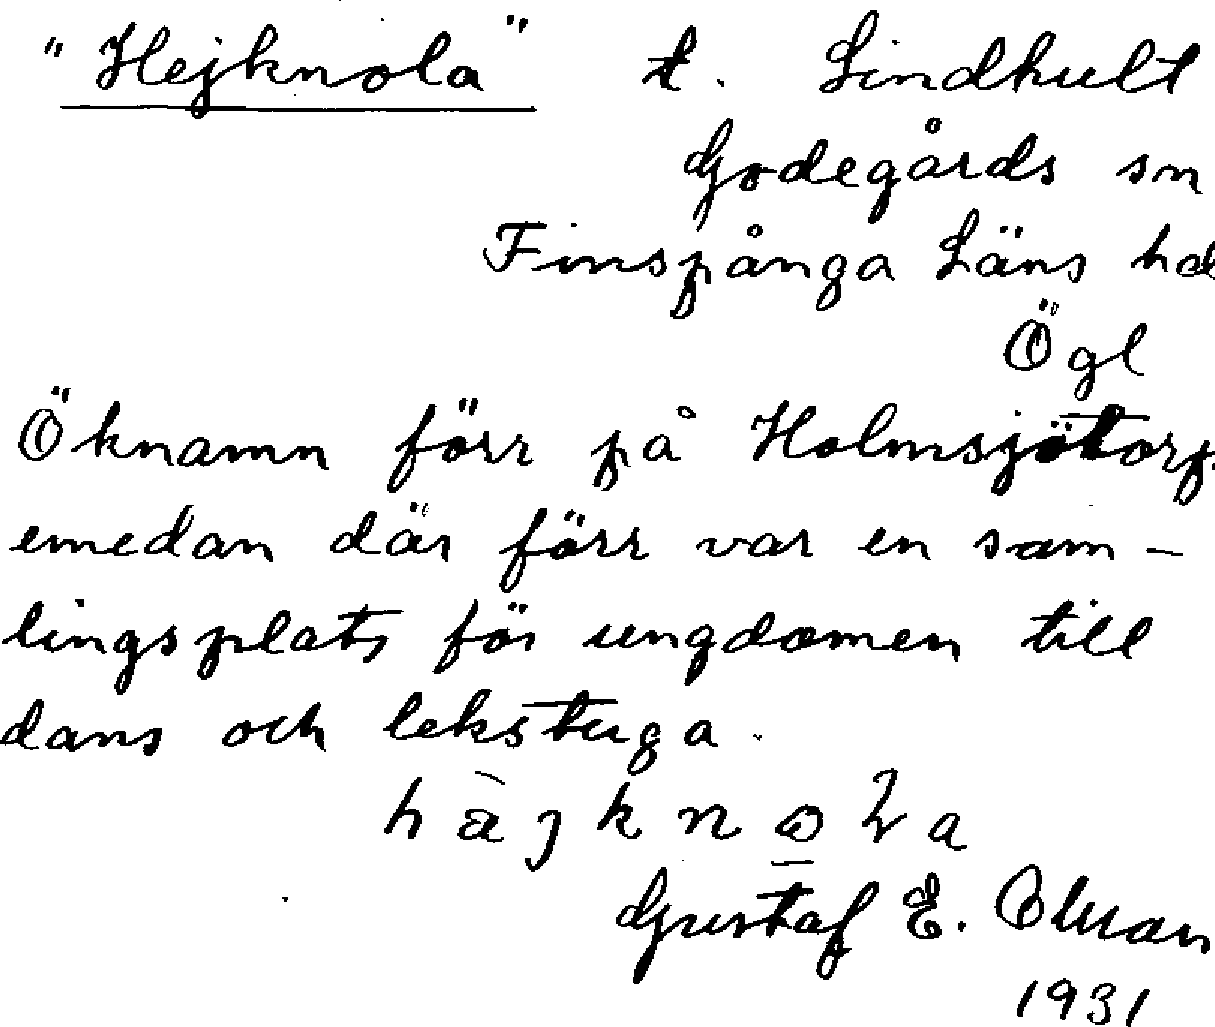 "Hejknola" t. Lindhult
Godegårds sn
Finspånga Läns hd
Ögl
Öknamn förr på Holmsjötorp
emedan där förr var en sam-
lingsplats för ungdomen till
dans och lekstuga.
Gustaf E. Olman
1931